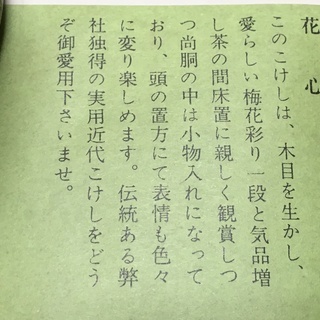 花心
このこけしは、木目を生かし、
愛らしい梅花彩り一段と気品増
し茶の間床置に親しく観賞しつ
つ尚胴の中は小物入れになって
おり、頭の置方にて表情も色々
に変り楽しめます。伝統ある弊
社独得の実用近代こけしをどう
ぞ御愛用下さいませ。